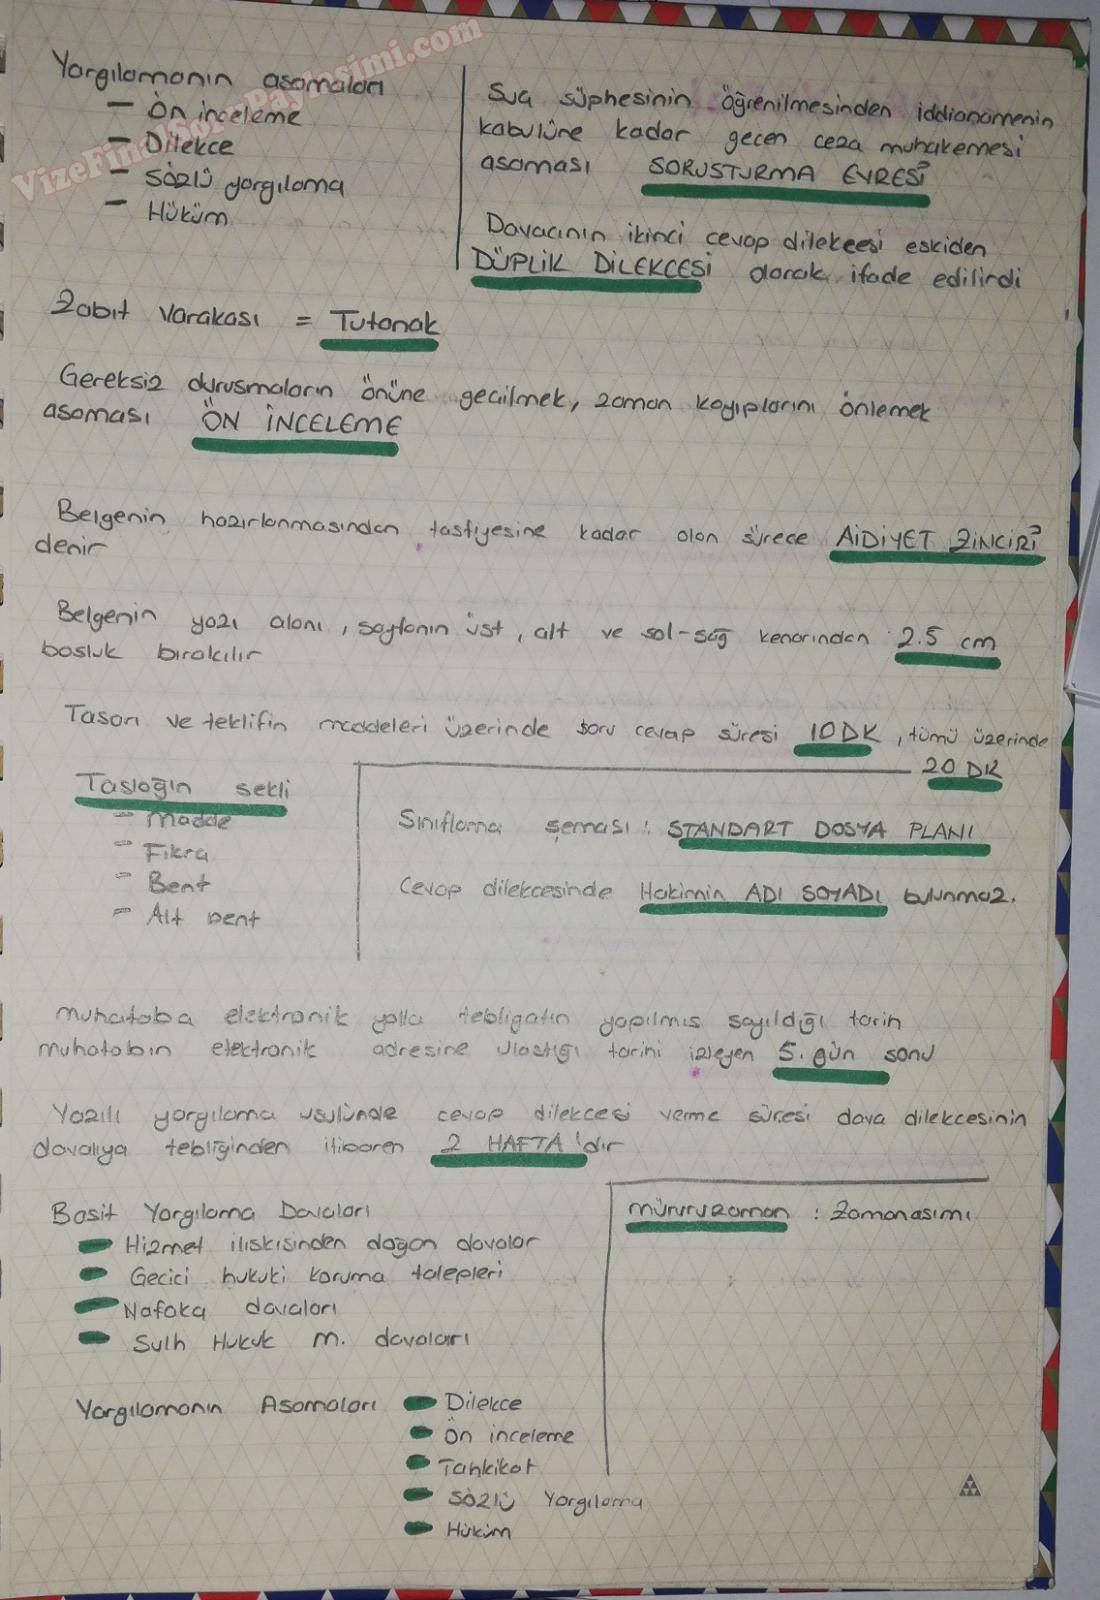 VizeFinalSoruPaylasimi.com
Yargılamanın asamaları
- Ön inceleme
- Dilekce
- Sözlü yargılama
- Hüküm
Suç süphesinin öğrenilmesinden iddianamenin
kabulüne kadar geçen ceza muhakemesi
asaması SORUSTURMA EVRESİ
Davacının ikinci cevap dilekcesi eskiden
DÜPLİK DİLEKCESİ olarak ifade edilirdi
Zabıt Varakası = Tutanak
Gereksiz durusmaların önüne geçilmek, zaman kayıplarını önlemek
asaması ÖN İNCELEME
Belgenin hazırlanmasından tasfiyesine kadar olan sürece AİDİYET ZİNCİRİ
denir
Belgenin yazı alanı, sayfanın üst, alt ve sol-sağ kenarından 2.5 cm
bosluk bırakılır
Tasarı ve teklifin maddeleri üzerinde soru cevap süresi 10DK, tümü üzerinde
20 DK
Taslağın sekli
- Madde
- Fıkra
- Bent
- Alt bent
Sınıflama şeması: STANDART DOSYA PLANI
Cevap dilekcesinde Hakimin ADI SOYADI bulunmaz.
muhataba elektronik yolla tebligatın yapılmıs sayıldığı tarih
muhatabın elektronik adresine ulastığı tarihi izleyen 5. gün sonu
Yazılı yargılama usulünde cevap dilekcesi verme süresi dava dilekcesinin
davalıya tebliğinden itibaren 2 HAFTA'dır
Basit Yargılama Davaları
Hizmet iliskisinden doğan davalar
Gecici hukuki koruma talepleri
Nafaka davaları
Sulh Hukuk m. davaları
müruruzaman : Zamanasımı
Yargılamanın Asamaları
Dilekce
Ön inceleme
Tahkikat
Sözlü Yargılama
Hüküm